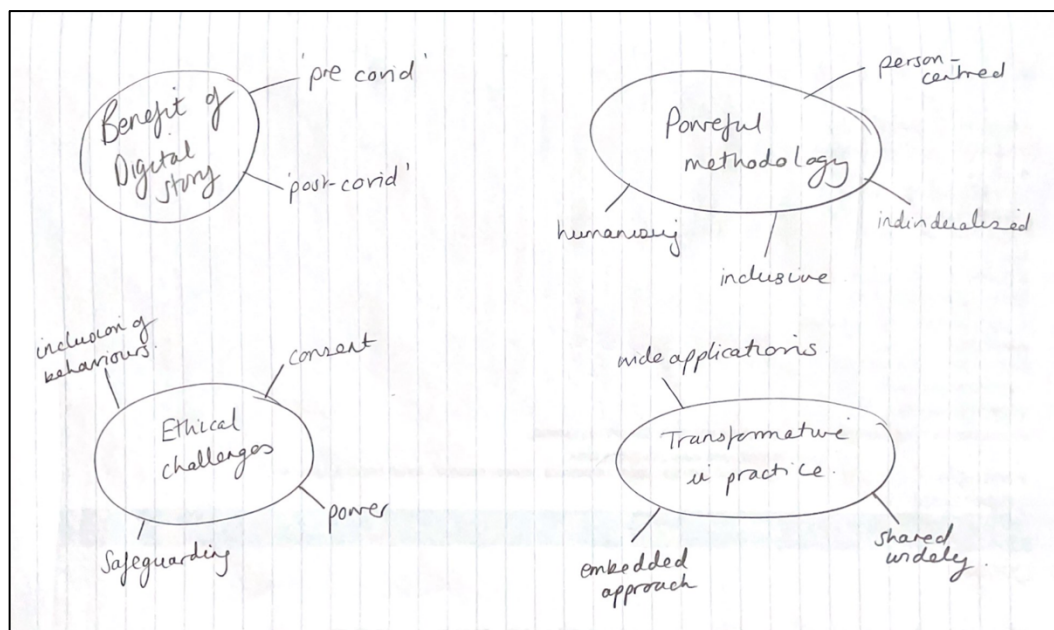 Benefit of
Digital
story
'pre covid'
'post-covid'
Powerful
methodology
person-
centred
individualised
inclusive
humanising
Ethical
challenges
inclusion of
behaviours.
consent
power
Safeguarding
Transformative
in practice.
wide applications.
shared
widely.
embedded
approach